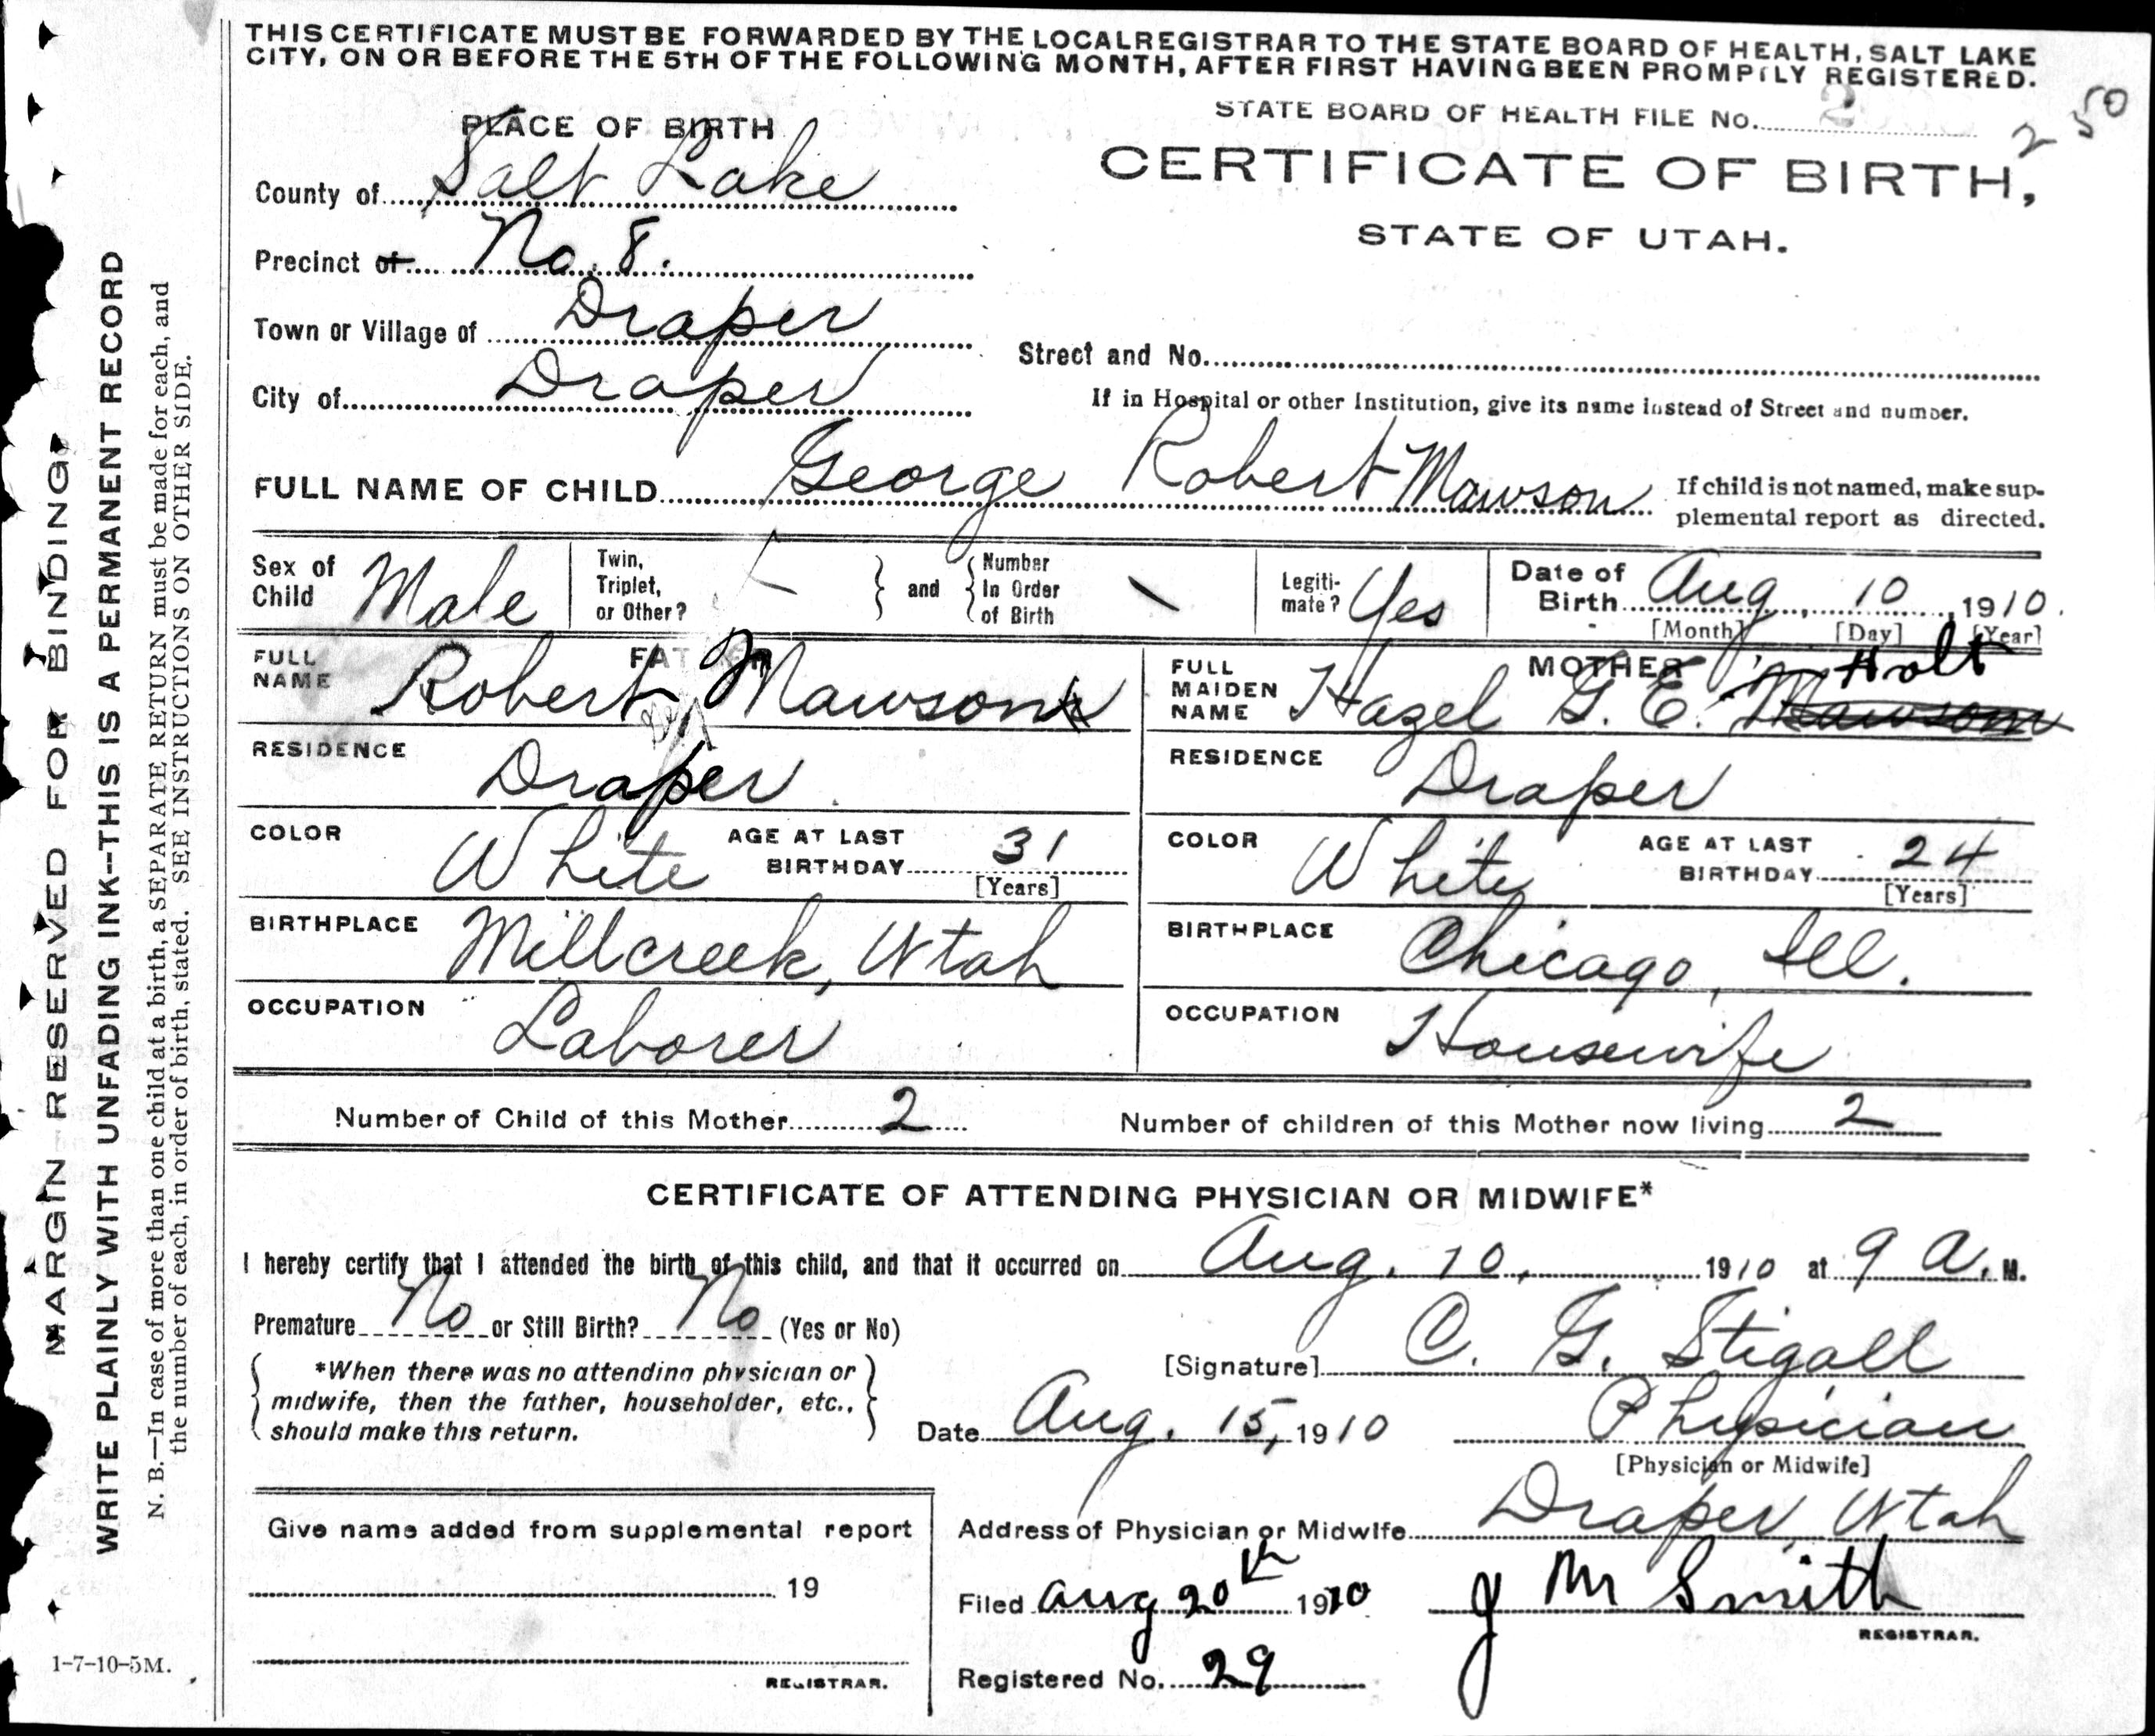 THIS CERTIFICATE MUST BE FORWARDED BY THE LOCAL REGISTRAR TO THE STATE BOARD OF HEALTH, SALT LAKE
CITY, ON OR BEFORE THE 5TH OF THE FOLLOWING MONTH, AFTER FIRST HAVING BEEN PROMPTLY REGISTERED.
STATE BOARD OF HEALTH FILE No. 2
2 50
PLACE OF BIRTH
CERTIFICATE OF BIRTH,
STATE OF UTAH.
County of Salt Lake
Precinct of No. 8.
Town or Village of Draper
Street and No.
City of Draper
If in Hospital or other Institution, give its name instead of Street and number.
FULL NAME OF CHILD George Robert Mawson
If child is not named, make sup-
plemental report as directed.
Sex of Child Male
Twin, Triplet, or Other?
and
Number In Order of Birth
Legiti-mate? Yes
Date of Birth Aug 10, 1910.
[Month] [Day] [Year]
FATHER
FULL NAME Robert Mawson
RESIDENCE Draper
COLOR White AGE AT LAST BIRTHDAY 31
[Years]
BIRTHPLACE Millcreek, Utah
OCCUPATION Laborer
MOTHER
FULL MAIDEN NAME Hazel G. E. Mawson Holt
RESIDENCE Draper
COLOR White AGE AT LAST BIRTHDAY 24
[Years]
BIRTHPLACE Chicago, Ill.
OCCUPATION Housewife
Number of Child of this Mother 2 Number of children of this Mother now living 2
CERTIFICATE OF ATTENDING PHYSICIAN OR MIDWIFE*
I hereby certify that I attended the birth of this child, and that it occurred on Aug. 10, 1910 at 9 A. M.
Premature No or Still Birth? No (Yes or No)
*When there was no attending physician or
midwife, then the father, householder, etc.,
should make this return.
[Signature] C. G. Stigall
Date Aug. 15, 1910 Physician
[Physician or Midwife]
Address of Physician or Midwife Draper, Utah
Give name added from supplemental report
19
REGISTRAR.
Filed Aug 20th 1910 J M Smith
REGISTRAR.
Registered No. 29
MARGIN RESERVED FOR BINDING
WRITE PLAINLY WITH UNFADING INK--THIS IS A PERMANENT RECORD
N. B.—In case of more than one child at a birth, a SEPARATE RETURN must be made for each, and
the number of each, in order of birth, stated. SEE INSTRUCTIONS ON OTHER SIDE.
1-7-10-5M.